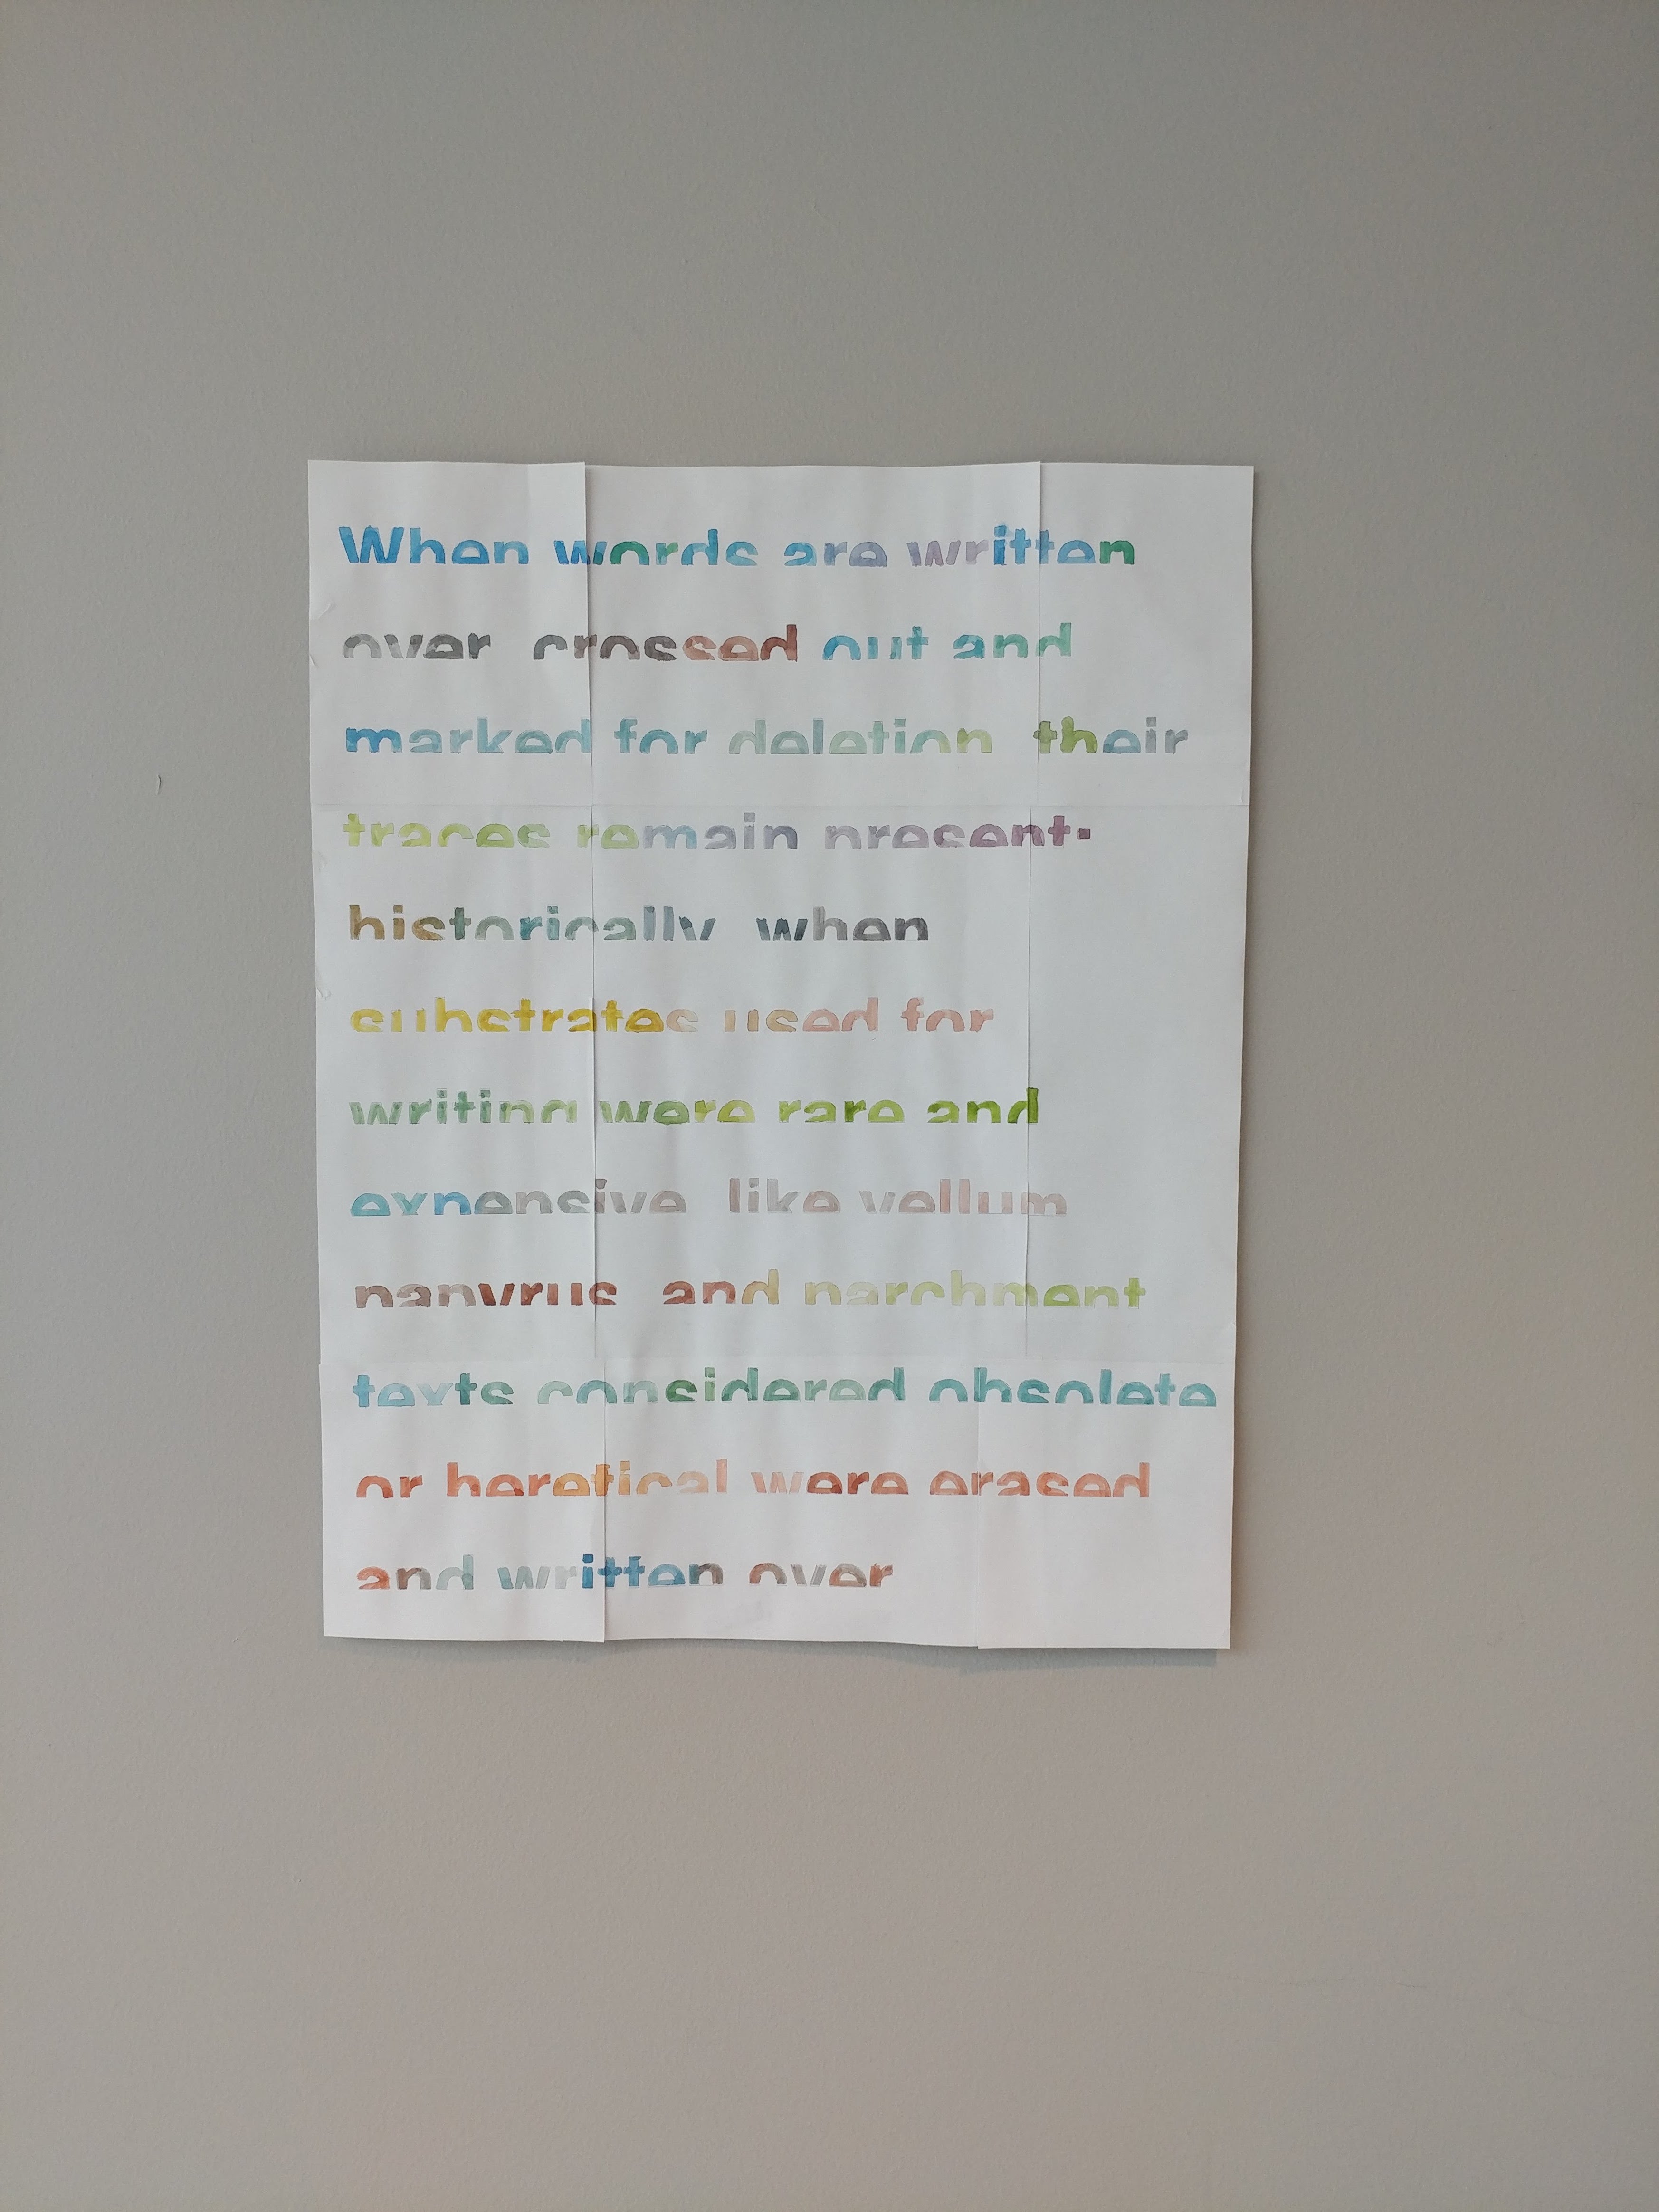 When words are written
over crossed out and
marked for deletion their
traces remain present·
historically when
substrates used for
writing were rare and
expensive like vellum
papyrus and parchment
texts considered obsolete
or heretical were erased
and written over